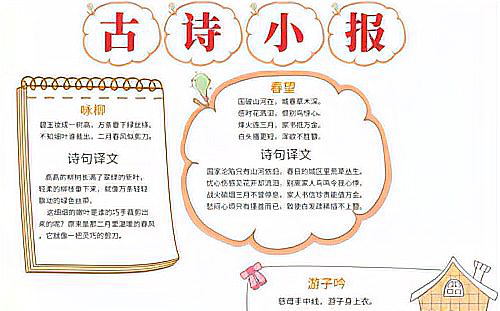 古诗小报
咏柳
碧玉妆成一树高，万条垂下绿丝绦。
不知细叶谁裁出，二月春风似剪刀。
诗句译文
高高的柳树长满了翠绿的新叶，
轻柔的柳枝垂下来，就像万条轻轻
飘动的绿色丝带。
这细细的嫩叶是谁的巧手裁剪出
来的呢？原来是那二月里温暖的春风
，它就像一把灵巧的剪刀。
春望
国破山河在，城春草木深。
感时花溅泪，恨别鸟惊心。
烽火连三月，家书抵万金。
白头搔更短，浑欲不胜簪。
诗句译文
国家沦陷只有山河依旧，春日的城区里荒草丛生。
忧心伤感见花开却流泪，别离家人鸟鸣令我心悸。
战火硝烟三月不曾停息，家人书信珍贵能值万金。
愁闷心烦只有搔首而已，致使白发疏稀插不上簪。
游子吟
慈母手中线，游子身上衣。